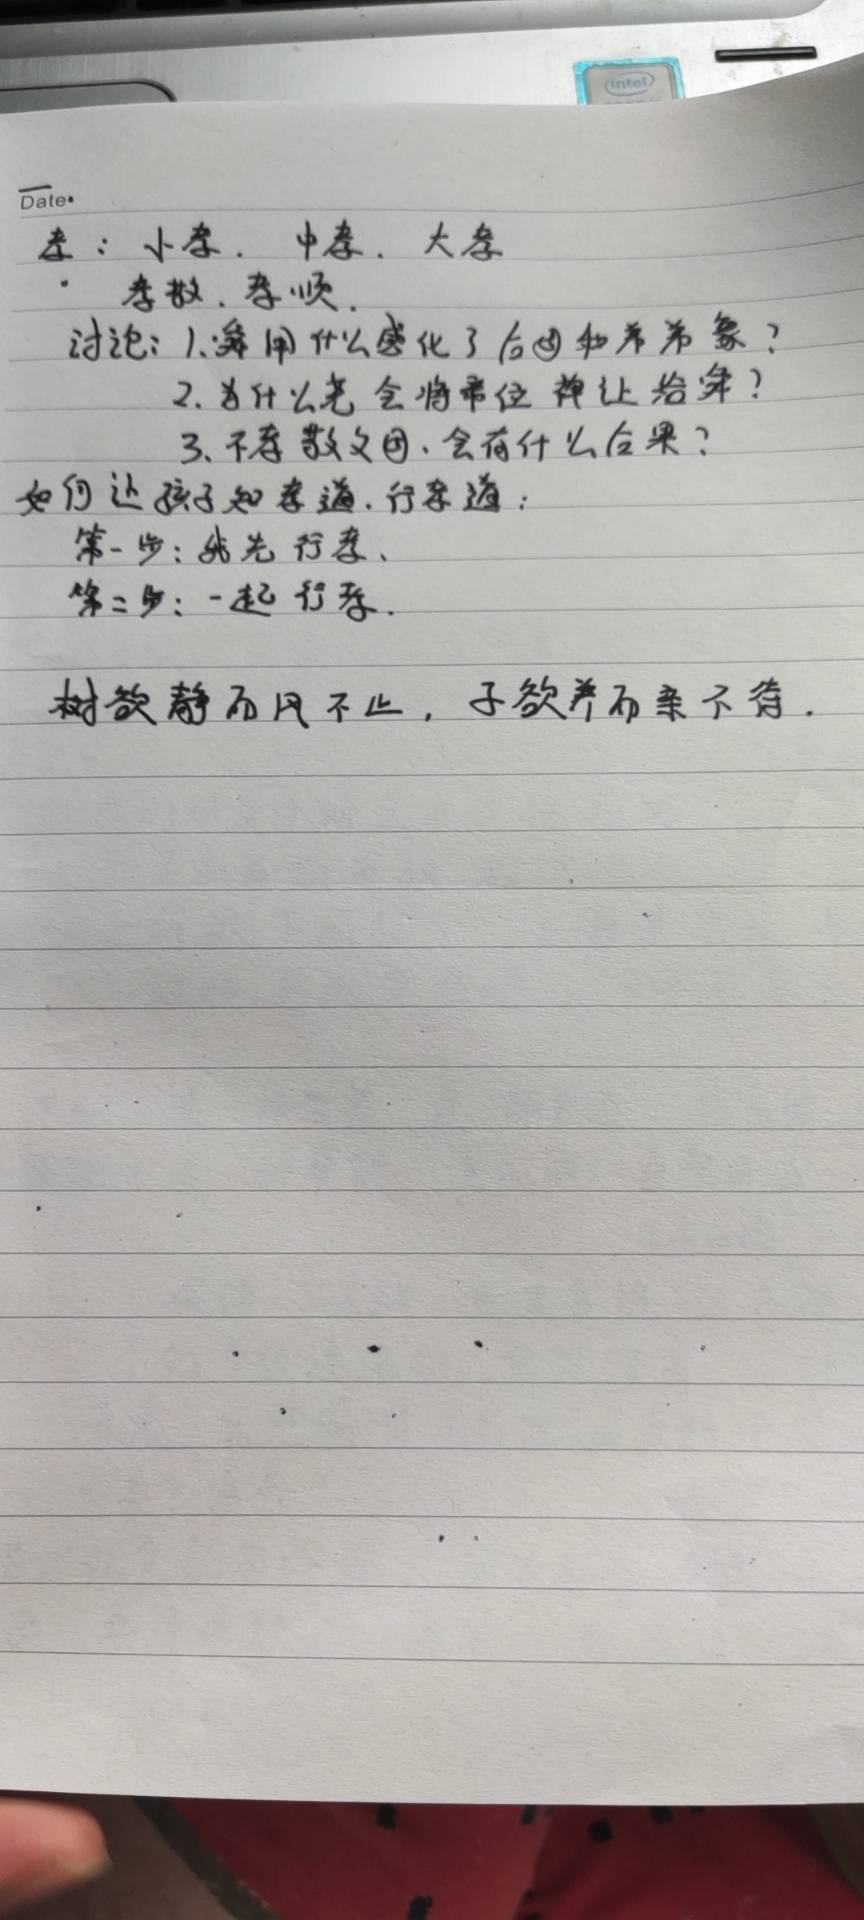 intel
Date
孝：小孝. 中孝. 大孝
孝敬. 孝顺.
讨论：1.舜用什么感化了后母和弟弟象？
2.为什么尧会将帝位禅让给舜？
3.不孝敬父母.会有什么后果？
如何让孩子知孝道.行孝道：
第一步：我先行孝.
第二步：一起行孝.
树欲静而风不止，子欲养而亲不待.